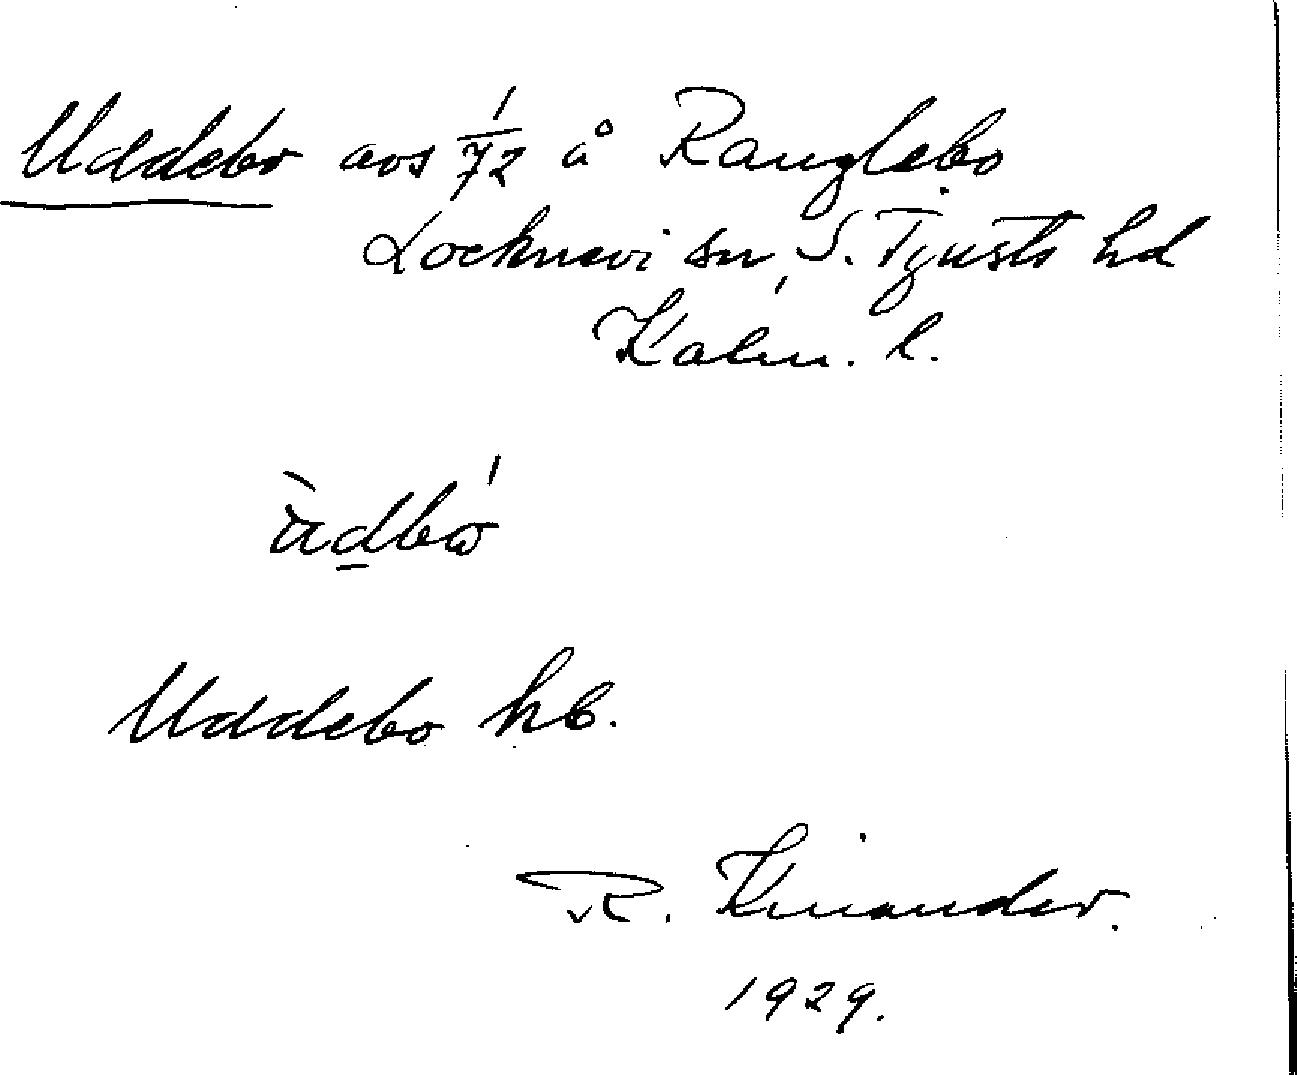 Uddebo avs 1/72 å Ranglebo
Locknevi sn, S. Tjusts hd
Kalm. l.
ùdbó
Uddebo hb.
R. Kinander.
1929.